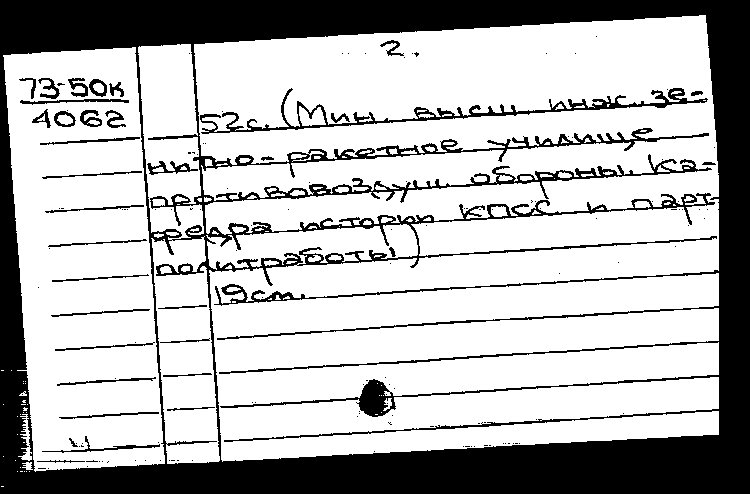 2.
73-50к
4062
52с. (Мин. высш инж. зе-
нитно-ракетное училище
противовоздуш. обороны. Ка-
федра истории КПСС и парт-
политработы)
19см.